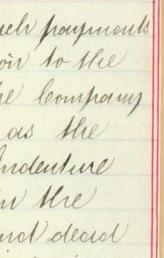 such payments
to the
the Company
as the
Indenture
in the
and dead